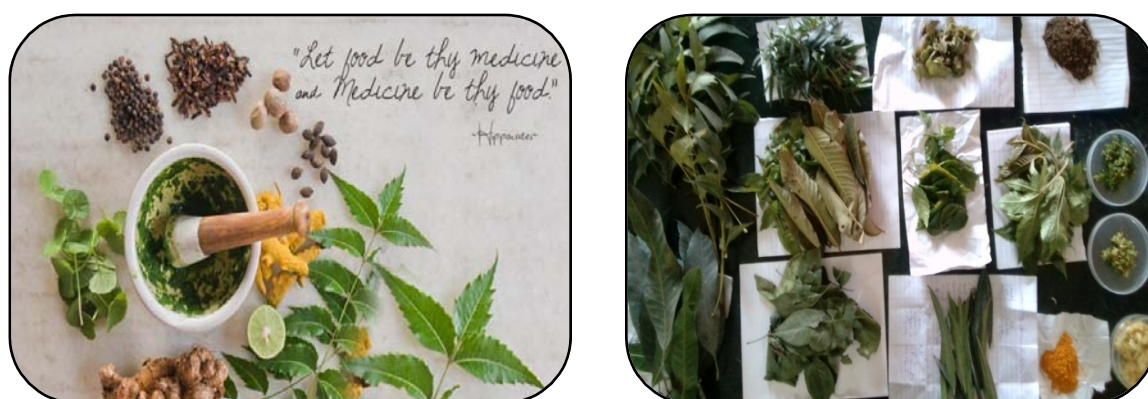 "Let food be thy medicine
and Medicine be thy food."
-Hippocrates-